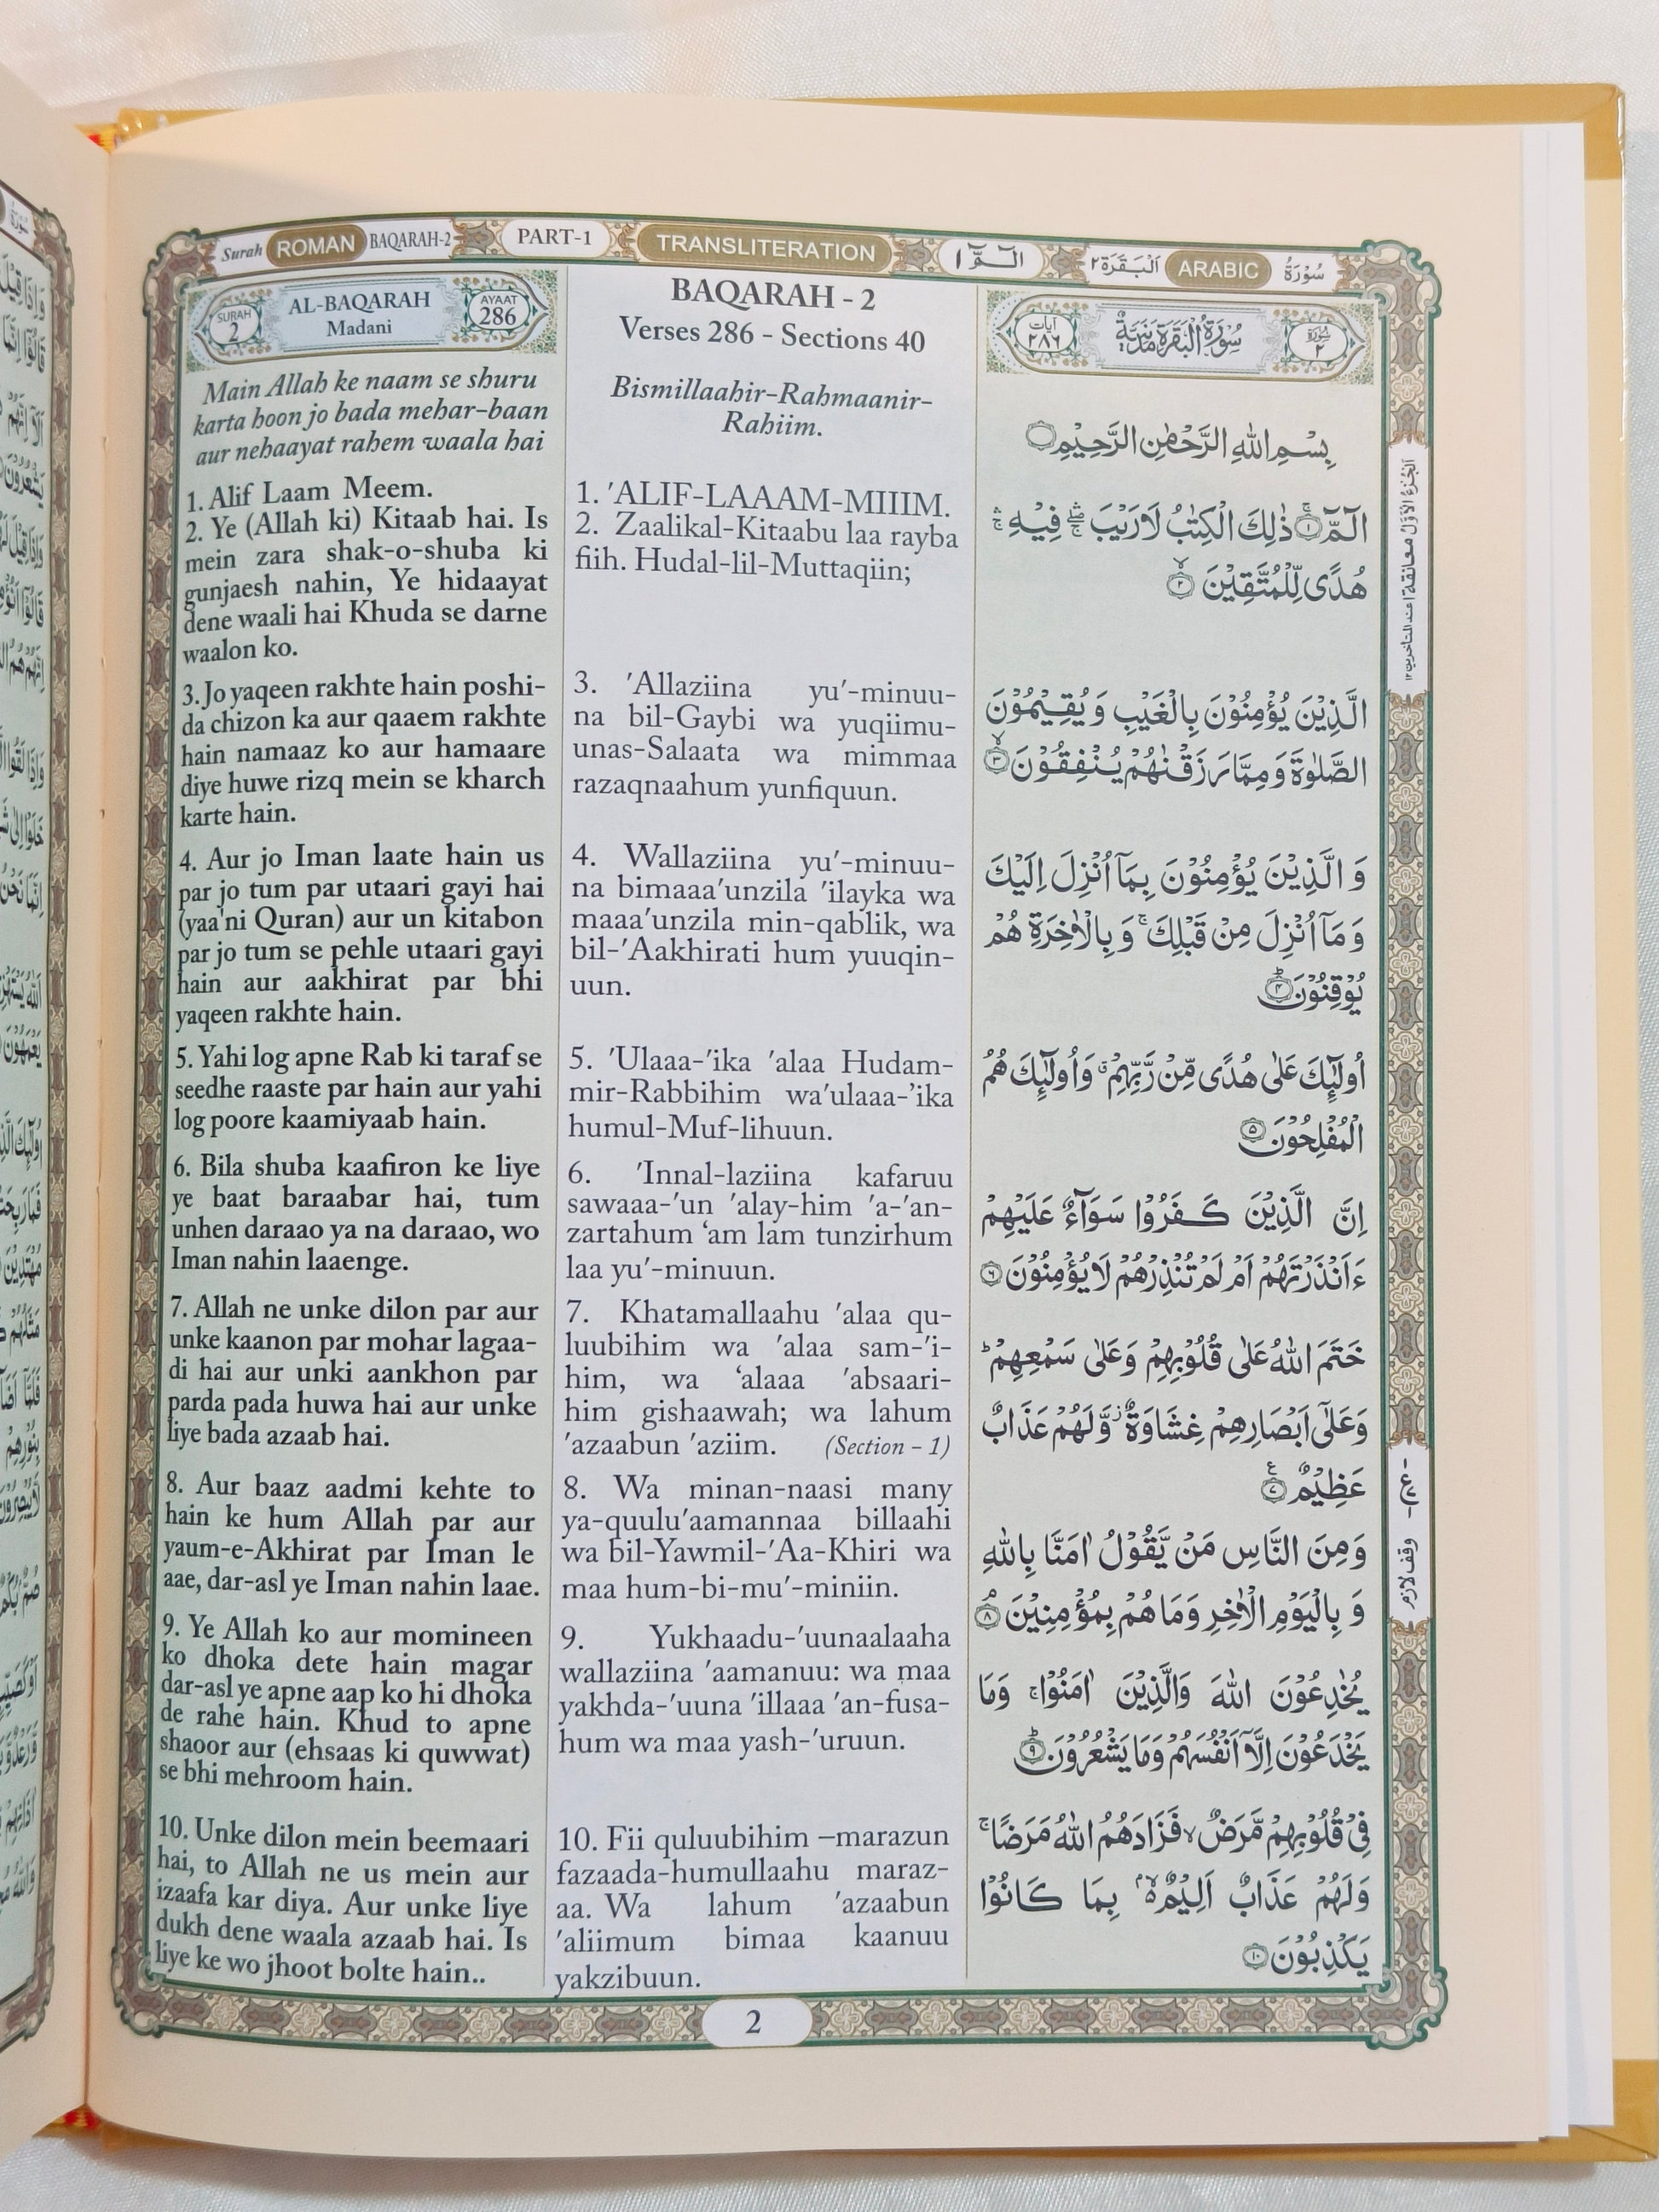 Surah ROMAN BAQARAH-2
PART-1
TRANSLITERATION
الٓمّٓ ١
سُوْرَةُ ARABIC اَلْبَقَرَة ٢
SURAH 2
AL-BAQARAH
Madani
AYAAT 286
Main Allah ke naam se shuru
karta hoon jo bada mehar-baan
aur nehaayat rahem waala hai
1. Alif Laam Meem.
2. Ye (Allah ki) Kitaab hai. Is
mein zara shak-o-shuba ki
gunjaesh nahin, Ye hidaayat
dene waali hai Khuda se darne
waalon ko.
3. Jo yaqeen rakhte hain poshi-
da chizon ka aur qaaem rakhte
hain namaaz ko aur hamaare
diye huwe rizq mein se kharch
karte hain.
4. Aur jo Iman laate hain us
par jo tum par utaari gayi hai
(yaa'ni Quran) aur un kitabon
par jo tum se pehle utaari gayi
hain aur aakhirat par bhi
yaqeen rakhte hain.
5. Yahi log apne Rab ki taraf se
seedhe raaste par hain aur yahi
log poore kaamiyaab hain.
6. Bila shuba kaafiron ke liye
ye baat baraabar hai, tum
unhen daraao ya na daraao, wo
Iman nahin laaenge.
7. Allah ne unke dilon par aur
unke kaanon par mohar lagaa-
di hai aur unki aankhon par
parda pada huwa hai aur unke
liye bada azaab hai.
8. Aur baaz aadmi kehte to
hain ke hum Allah par aur
yaum-e-Akhirat par Iman le
aae, dar-asl ye Iman nahin laae.
9. Ye Allah ko aur momineen
ko dhoka dete hain magar
dar-asl ye apne aap ko hi dhoka
de rahe hain. Khud to apne
shaoor aur (ehsaas ki quwwat)
se bhi mehroom hain.
10. Unke dilon mein beemaari
hai, to Allah ne us mein aur
izaafa kar diya. Aur unke liye
dukh dene waala azaab hai. Is
liye ke wo jhoot bolte hain..
BAQARAH - 2
Verses 286 - Sections 40
Bismillaahir-Rahmaanir-
Rahiim.
1. 'ALIF-LAAAM-MIIIM.
2. Zaalikal-Kitaabu laa rayba
fiih. Hudal-lil-Muttaqiin;
3. 'Allaziina yu'-minuu-
na bil-Gaybi wa yuqiimu-
unas-Salaata wa mimmaa
razaqnaahum yunfiquun.
4. Wallaziina yu'-minuu-
na bimaaa'unzila 'ilayka wa
maaa'unzila min-qablik, wa
bil-'Aakhirati hum yuuqin-
uun.
5. 'Ulaaa-'ika 'alaa Hudam-
mir-Rabbihim wa'ulaaa-'ika
humul-Muf-lihuun.
6. 'Innal-laziina kafaruu
sawaaa-'un 'alay-him 'a-'an-
zartahum ‘am lam tunzirhum
laa yu'-minuun.
7. Khatamallaahu 'alaa qu-
luubihim wa 'alaa sam-'i-
him, wa ‘alaaa 'absaari-
him gishaawah; wa lahum
'azaabun 'aziim. (Section - 1)
8. Wa minan-naasi many
ya-quulu'aamannaa billaahi
wa bil-Yawmil-'Aa-Khiri wa
maa hum-bi-mu'-miniin.
9. Yukhaadu-'uunaalaaha
wallaziina 'aamanuu: wa maa
yakhda-'uuna 'illaaa 'an-fusa-
hum wa maa yash-'uruun.
10. Fii quluubihim –marazun
fazaada-humullaahu maraz-
aa. Wa lahum 'azaabun
'aliimum bimaa kaanuu
yakzibuun.
سُوْرَةٌ ٢
سُوْرَةُ الْبَقَرَةِ مَدَنِيَّةٌ
اٰيات ٢٨٦
بِسْمِ اللهِ الرَّحْمٰنِ الرَّحِيْمِ
الٓمّٓ ۝١ ذٰلِكَ الْكِتٰبُ لَا رَيْبَ ۛ فِيْهِ ۛ
هُدًى لِّلْمُتَّقِيْنَ ۝٢
الَّذِيْنَ يُؤْمِنُوْنَ بِالْغَيْبِ وَ يُقِيْمُوْنَ
الصَّلٰوةَ وَ مِمَّا رَزَقْنٰهُمْ يُنْفِقُوْنَ ۝٣
وَ الَّذِيْنَ يُؤْمِنُوْنَ بِمَاۤ اُنْزِلَ اِلَيْكَ
وَ مَاۤ اُنْزِلَ مِنْ قَبْلِكَ ۚ وَ بِالْاٰخِرَةِ هُمْ
يُوْقِنُوْنَ ۝٤
اُولٰٓئِكَ عَلٰى هُدًى مِّنْ رَّبِّهِمْ ۗ وَ اُولٰٓئِكَ هُمُ
الْمُفْلِحُوْنَ ۝٥
اِنَّ الَّذِيْنَ كَفَرُوْا سَوَآءٌ عَلَيْهِمْ
ءَاَنْذَرْتَهُمْ اَمْ لَمْ تُنْذِرْهُمْ لَا يُؤْمِنُوْنَ ۝٦
خَتَمَ اللهُ عَلٰى قُلُوْبِهِمْ وَعَلٰى سَمْعِهِمْ ؕ
وَعَلٰٓى اَبْصَارِهِمْ غِشَاوَةٌ ؗ وَّلَهُمْ عَذَابٌ
عَظِيْمٌ ۝٧
وَمِنَ النَّاسِ مَنْ يَّقُوْلُ اٰمَنَّا بِاللهِ
وَ بِالْيَوْمِ الْاٰخِرِ وَمَا هُمْ بِمُؤْمِنِيْنَ ۝٨
يُخٰدِعُوْنَ اللهَ وَالَّذِيْنَ اٰمَنُوْا ۚ وَمَا
يَخْدَعُوْنَ اِلَّاۤ اَنْفُسَهُمْ وَمَا يَشْعُرُوْنَ ۝٩
فِيْ قُلُوْبِهِمْ مَّرَضٌ ۙ فَزَادَهُمُ اللهُ مَرَضًا ۚ
وَلَهُمْ عَذَابٌ اَلِيْمٌ ۙ۬ بِمَا كَانُوْا
يَكْذِبُوْنَ ۝١٠
اَلْجُزْءُ الْاَوَّلُ معانقة ١ عند المتاخرين ١٢
وقف لازم
2